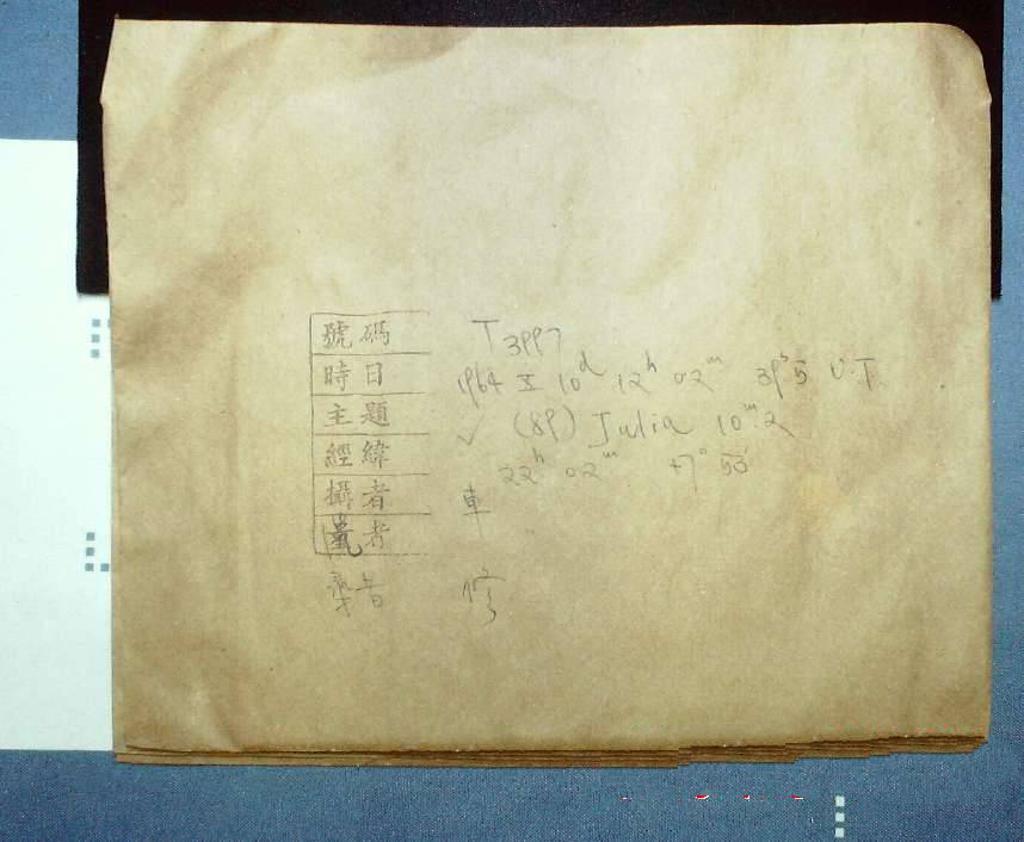 號碼 T3997
時日 1964 X 10ᵈ 12ʰ 02ᵐ 39ˢ5 U.T.
主題 ✓ (89) Julia 10ᵐ.2
經緯 22ʰ 02ᵐ +7° 53'
攝者 車
者